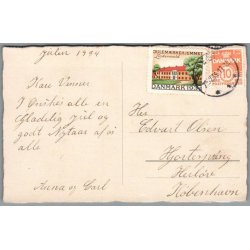 Julen 1944
Kære Venner
I Ønskes alle en
Glædelig Jul og
godt Nytaar af os
alle
Anna og Carl
JULEMÆRKEHJEMMET
DANMARK
DANMARK
10
Hr
Edvart Olsen
Hjortespring
Herlöv
København